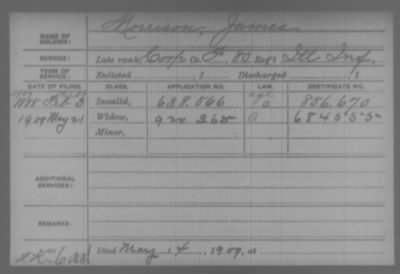 NAME OF SOLDIER: Morrison, James
SERVICE: Late rank, Corp Co. F, 80 Reg't Ill Inf.
TERM OF SERVICE: Enlisted , 1 Discharged , 1
DATE OF FILING. CLASS. APPLICATION NO. LAW. CERTIFICATE NO.
1888 Feb 3 Invalid, 638.566 856.670
1909 May 21 Widow, 920.365 684555
Minor,
ADDITIONAL SERVICES:
REMARKS:
Died May 4, 1909, at